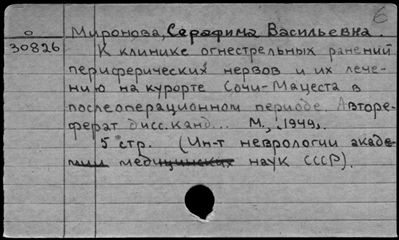 6
о Миронова, Серафима Васильевна.
30826 К клинике огнестрельных ранений
периферических нервов и их лече-
нию на курорте Сочи-Мацеста в
послеоперационном периоде. Авторе-
ферат дисс. канд... М., 1949.
5 стр. (Ин-т неврологии акаде-
мии медицинских наук СССР).